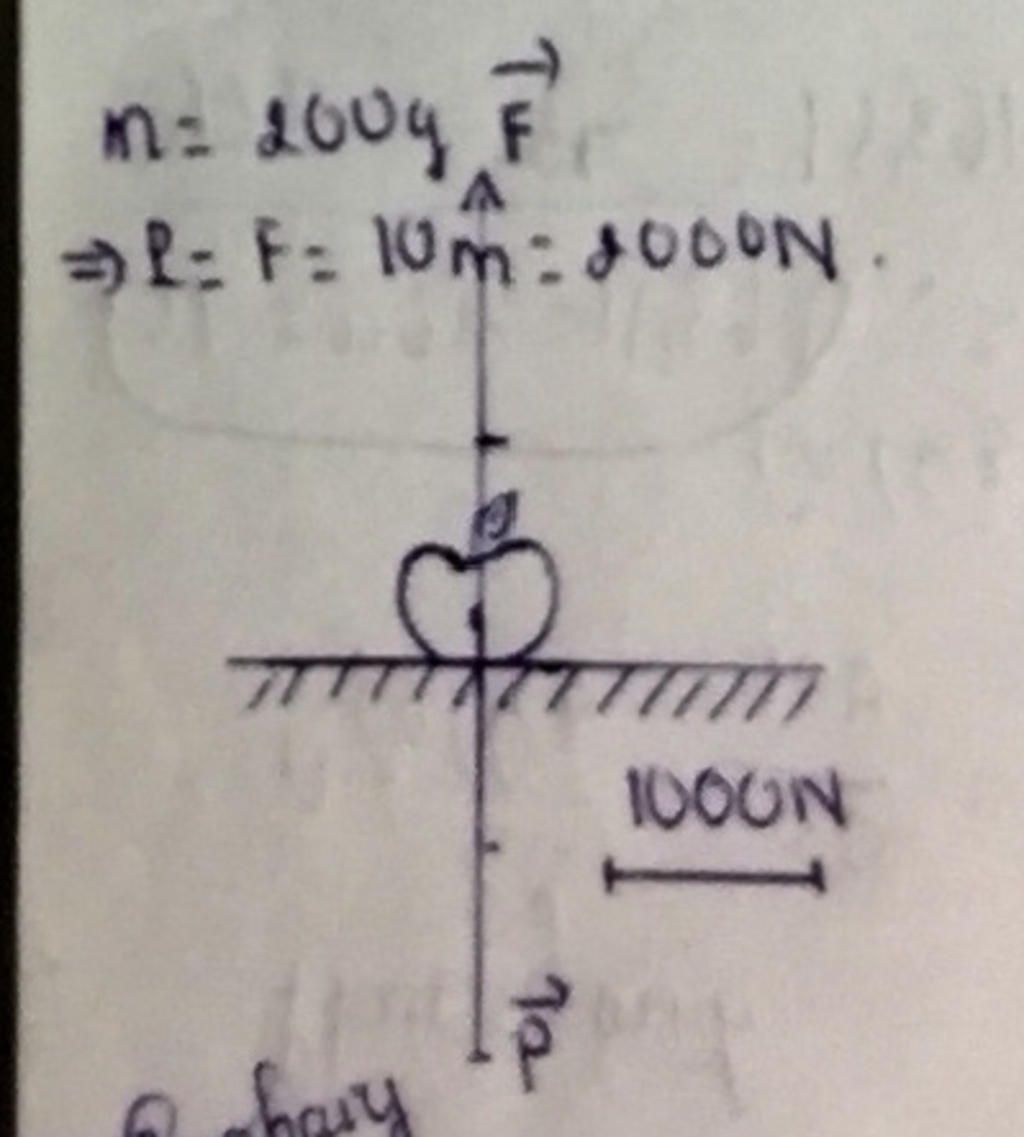 m = 200g F
⇒ P = F = 10m = 2000N.
1000N
P